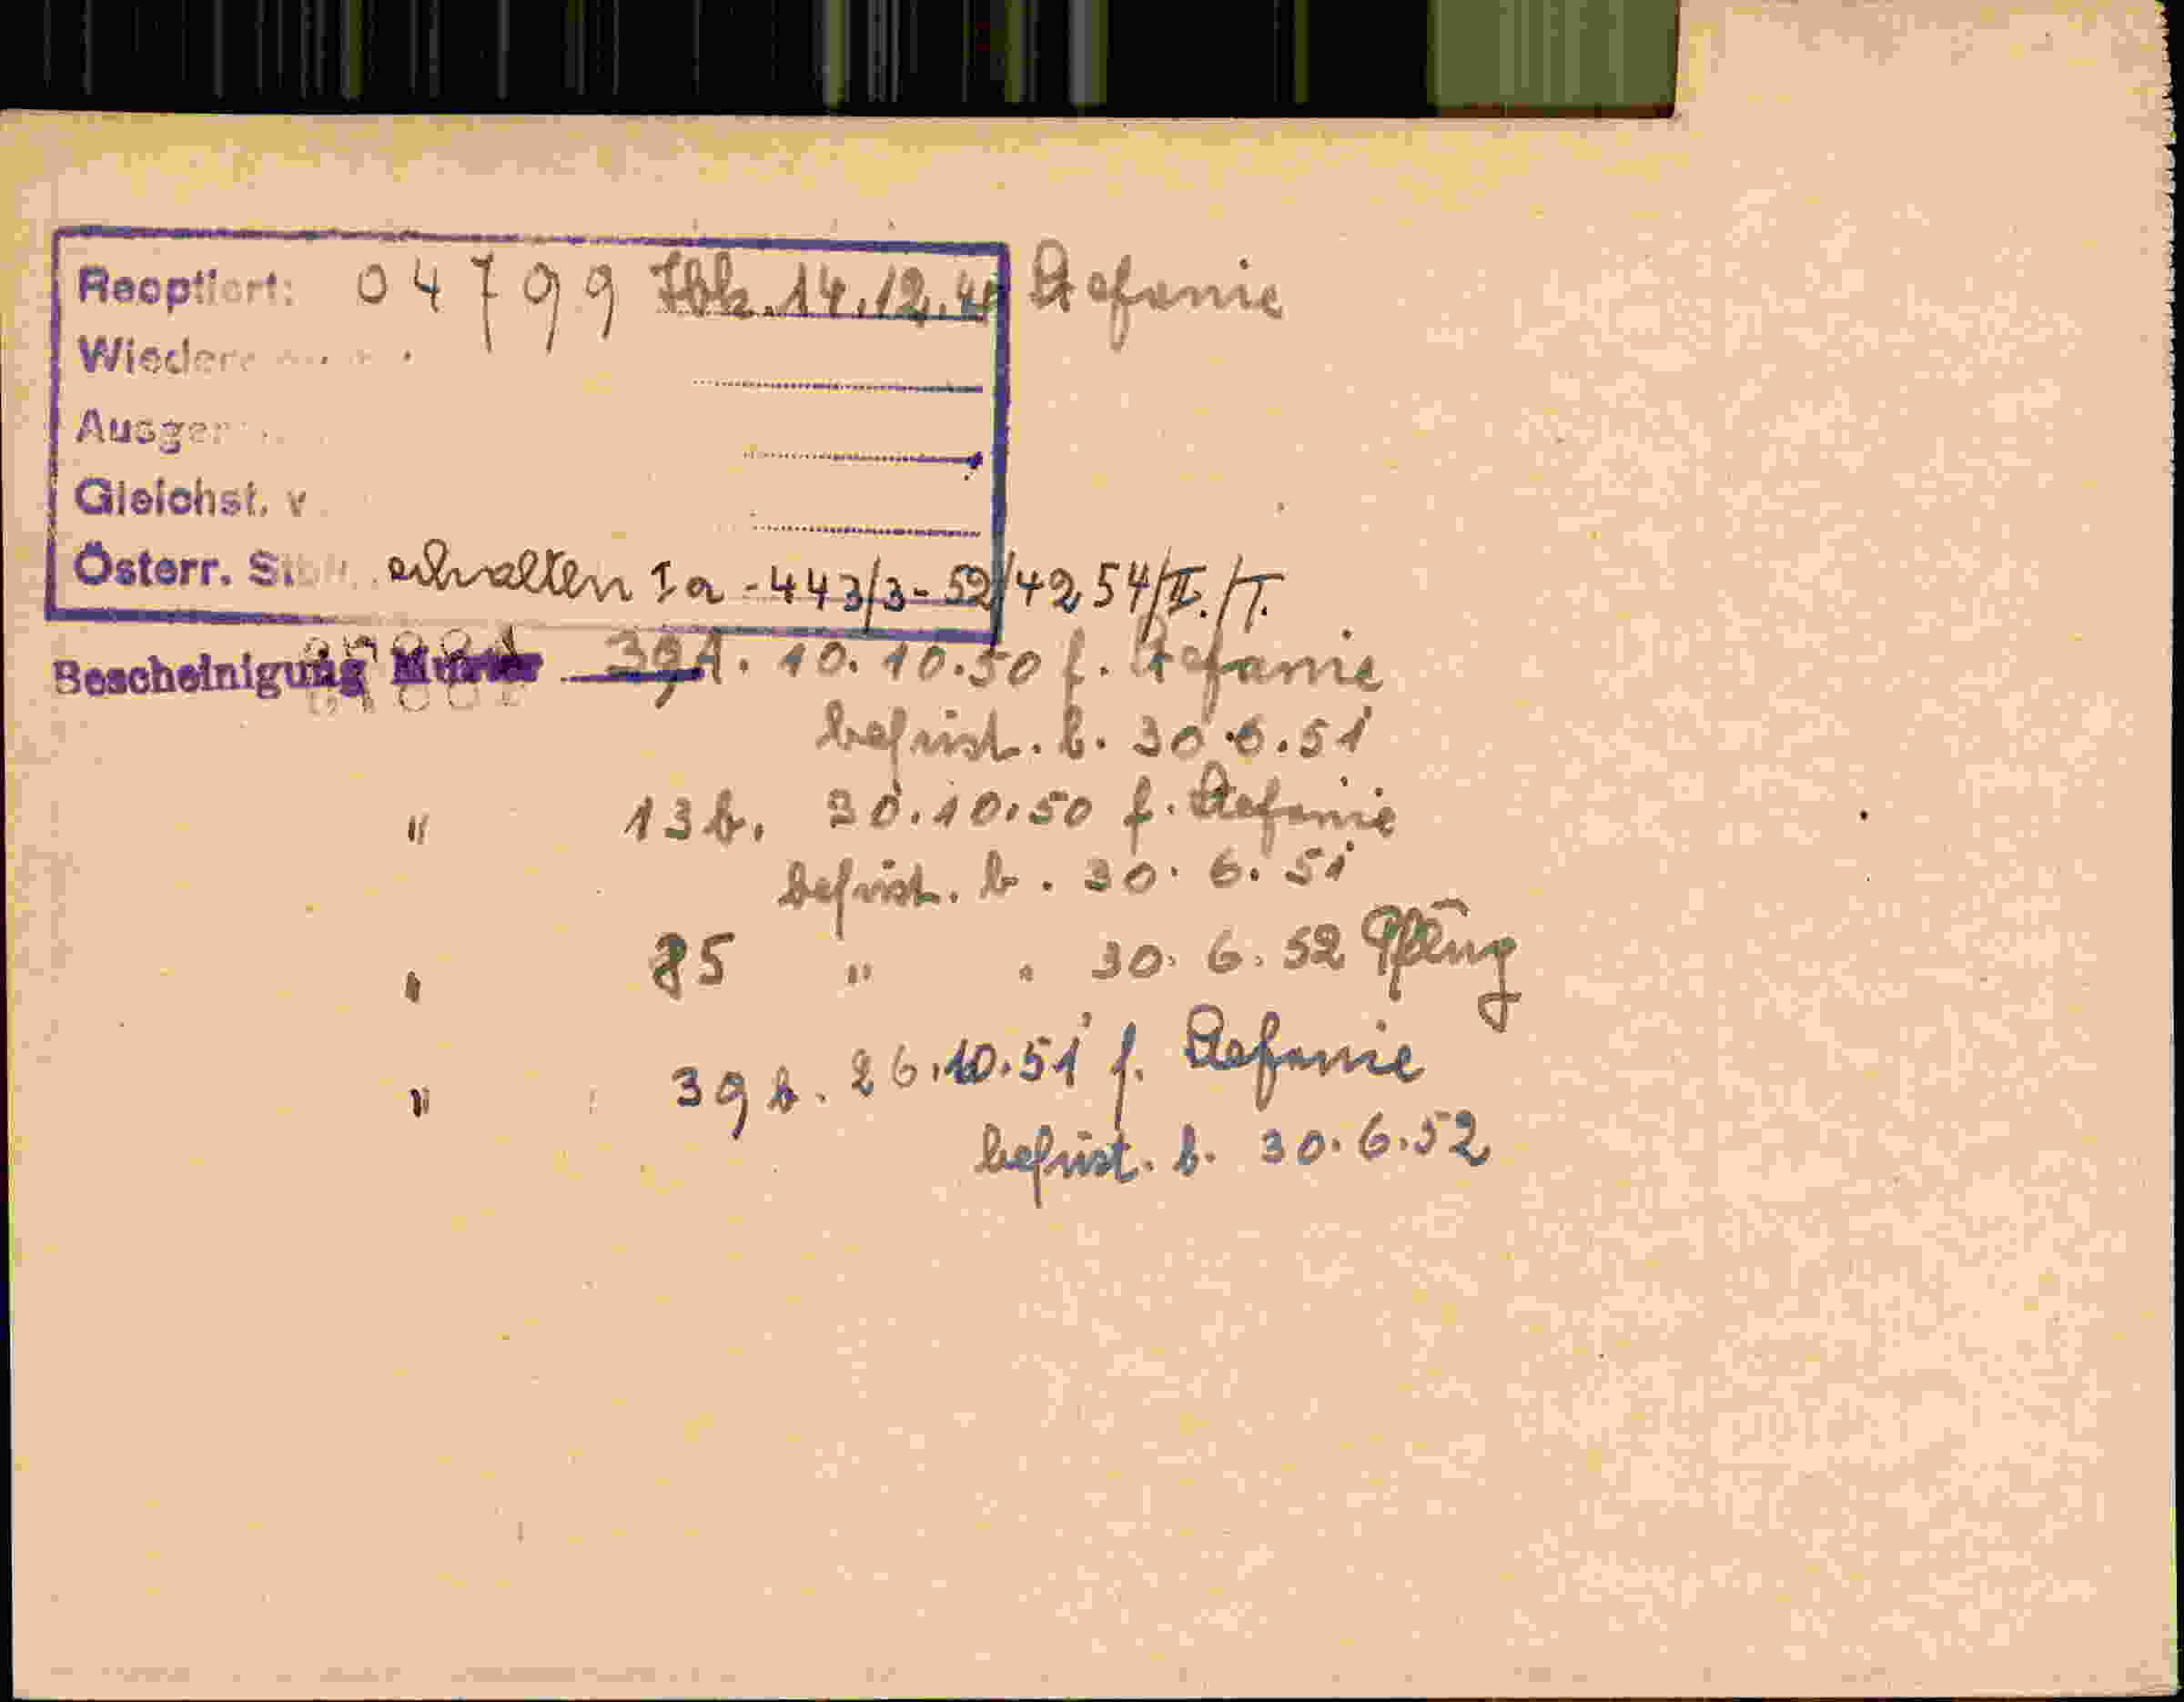 Reoptiert: 04799 Ibk. 14.12.49 Stefanie
Wieder
Ausger
Gleichst. v
Österr. S. erhalten Ia - 443/3-52/4254/II./T.
Bescheinigung Muster 39A. 10.10.50 f. Stefanie
befrist. b. 30.6.51
" 13b. 30.10.50 f. Stefanie
befrist. b. 30.6.51
" 85 " " 30.6.52
" 39b. 26.10.51 f. Stefanie
befrist. b. 30.6.52